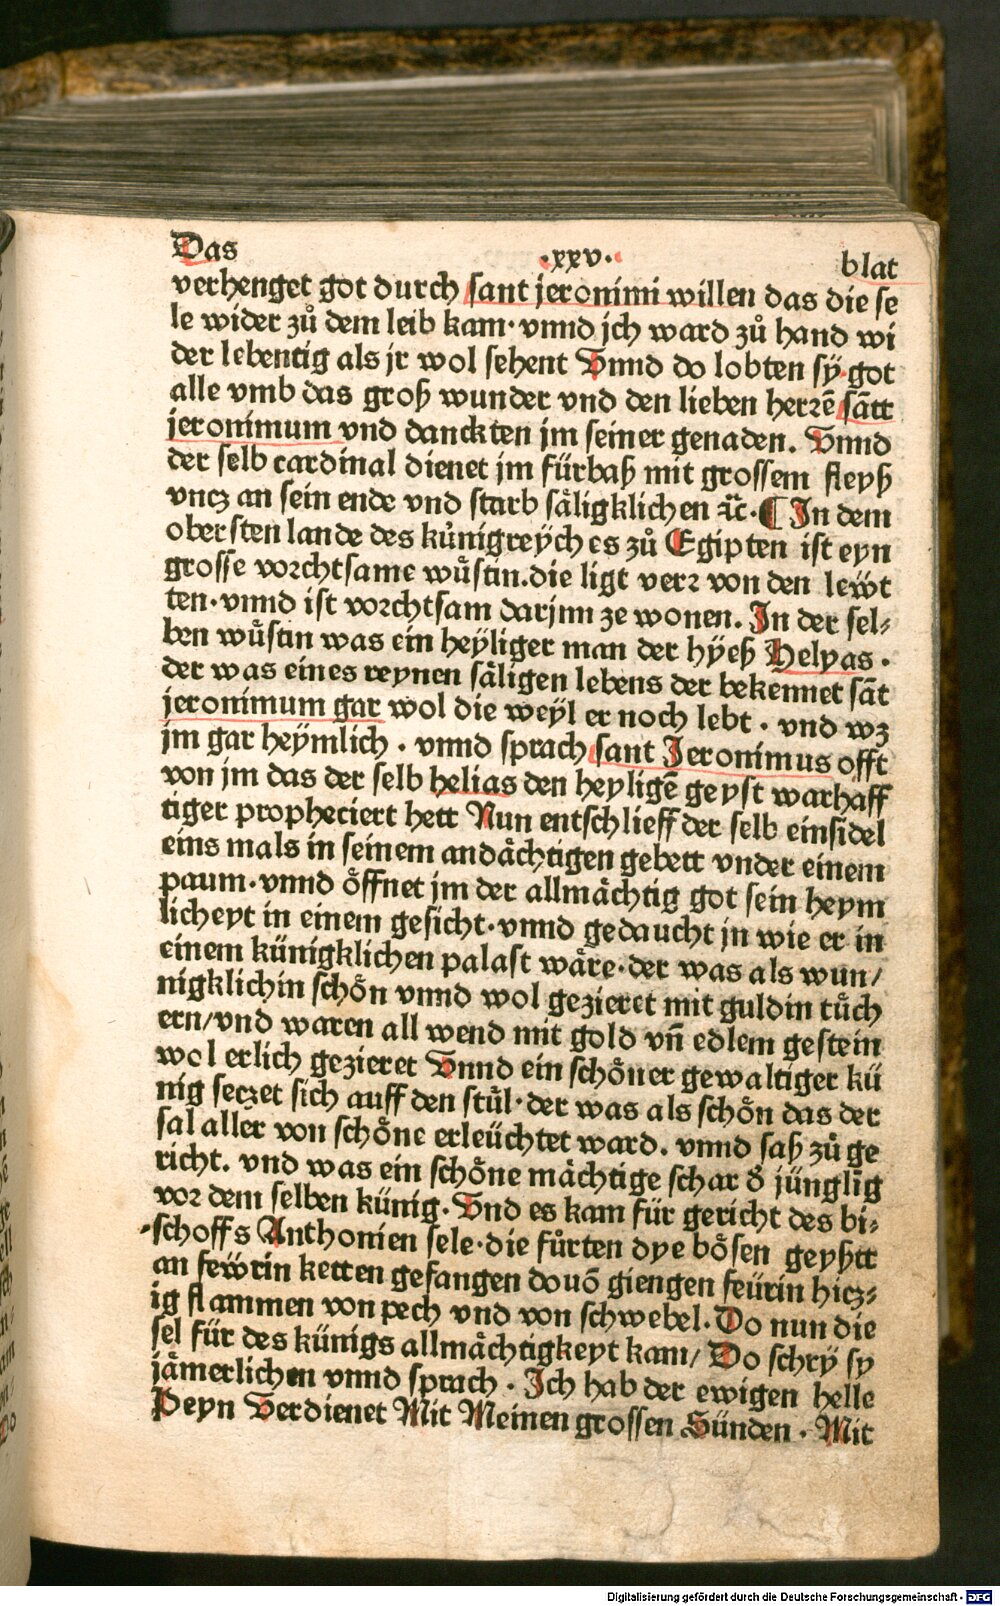 Das ·xxv· blat
verhenget got durch sant jeronimi willen das die se
le wider zů dem leib kam· vnnd jch ward zů hand wi
der lebentig als jr wol sehent Vnnd do lobten sÿ·got
alle vmb das groß wunder vnd den lieben herrē sātt
jeronimum vnd danckten jm seiner genaden. Vnnd
der selb cardinal dienet jm fürbaß mit grossem fleyß
vncz an sein ende vnd starb säligklichen ꝛc̄·¶ In dem
obersten lande des künigreÿches zů Egipten ist eyn
grosse vorchtsame wüstin.die ligt verr von den lewt
ten·vnnd ist vorchtsam darjnn ze wonen. In der sel⸗
ben wüstin was ein heÿliger man der hÿeß Helyas·
der was eines reynen säligen lebens der bekennet sāt
jeronimum gar wol die weÿl er noch lebt · vnd wz
jm gar heÿmlich · vnnd sprach sant Jeronimus offt
von jm das der selb helias den heyligē geyst warhaff
tiger propheciert hett Nun entschlieff der selb einsidel
eins mals in seinem andächtigen gebett vnder einem
paum·vnnd öffnet jm der allmächtig got sein heym
licheyt in einem gesicht·vnnd gedaucht jn wie er in
einem künigklichen palast wäre·der was als wun/
nigklichin schön vnnd wol gezieret mit guldin tüch
ern/vnd waren all wend mit gold vn̄ edlem gestein
wol erlich gezieret Vnnd ein schöner gewaltiger kü
nig seczet sich auff den stůl·der was als schön das der
sal aller von schöne erleüchtet ward. vnnd saß zů ge
richt. vnd was ein schöne mächtige schar d̕ jünglīg
vor dem selben künig. Vnd es kam für gericht des bi⸗
schoffs Anthonien sele·die fůrten dye bösen geyßtt
an fewrin ketten gefangen douō giengen feürin hicz⸗
ig flammen von pech vnd von schwebel. Do nun die
sel für des künigs allmächtigkeyt kam/ Do schrÿ sy
jämerlichen vnnd sprach · Ich hab der ewigen helle
Peyn Verdienet Mit Meinen grossen Sünden · Mit
Digitalisierung gefördert durch die Deutsche Forschungsgemeinschaft - DFG